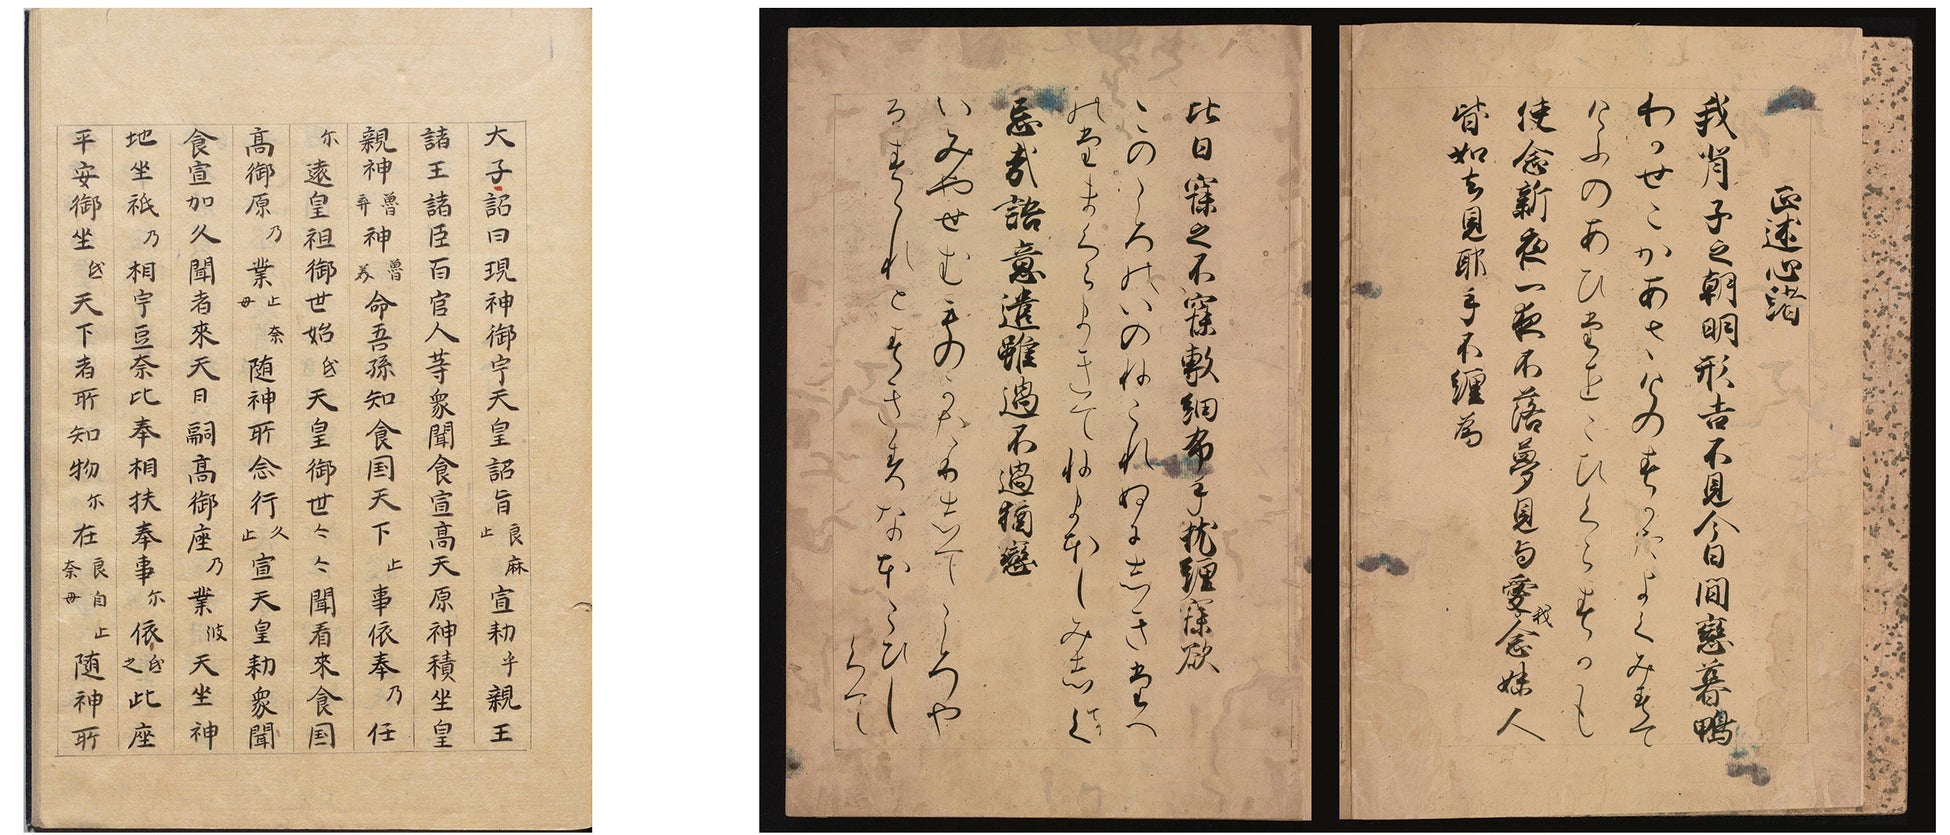 大子詔曰現神御宇天皇詔旨良麻止宣勅乎親王
諸王諸臣百官人等衆聞食宣高天原神積坐皇
親神魯弃神魯美命吾孫知食国天下止事依奉乃任
尓遠皇祖御世始弖天皇御世〻〻聞看來食国
高御原乃業止奈母随神所念行久止宣天皇勅衆聞
食宣加久聞者來天日嗣高御座乃業波天坐神
地坐祇乃相宇豆奈比奉相扶奉事尓依弖之此座
平安御坐弖天下者所知物尓在良自止奈母随神所
正述心緒
我背子之朝明形吉不見今日間戀暮鴨
わかせこかあさけのすかたよくみすて
けふのあひたをこひくらすかも
使念新夜一夜不落夢見与愛我念妹人
皆如去見耶手不纏為
比日寐之不寐敷細布手枕纒寐欲
このころのいのねられぬにしきたへ
のたまくらまきてねまほしみ
忌哉語意遣雖過不過猶戀
いみやせむものかたりしてこゝろや
りすくれとすきすなほこひし
くて